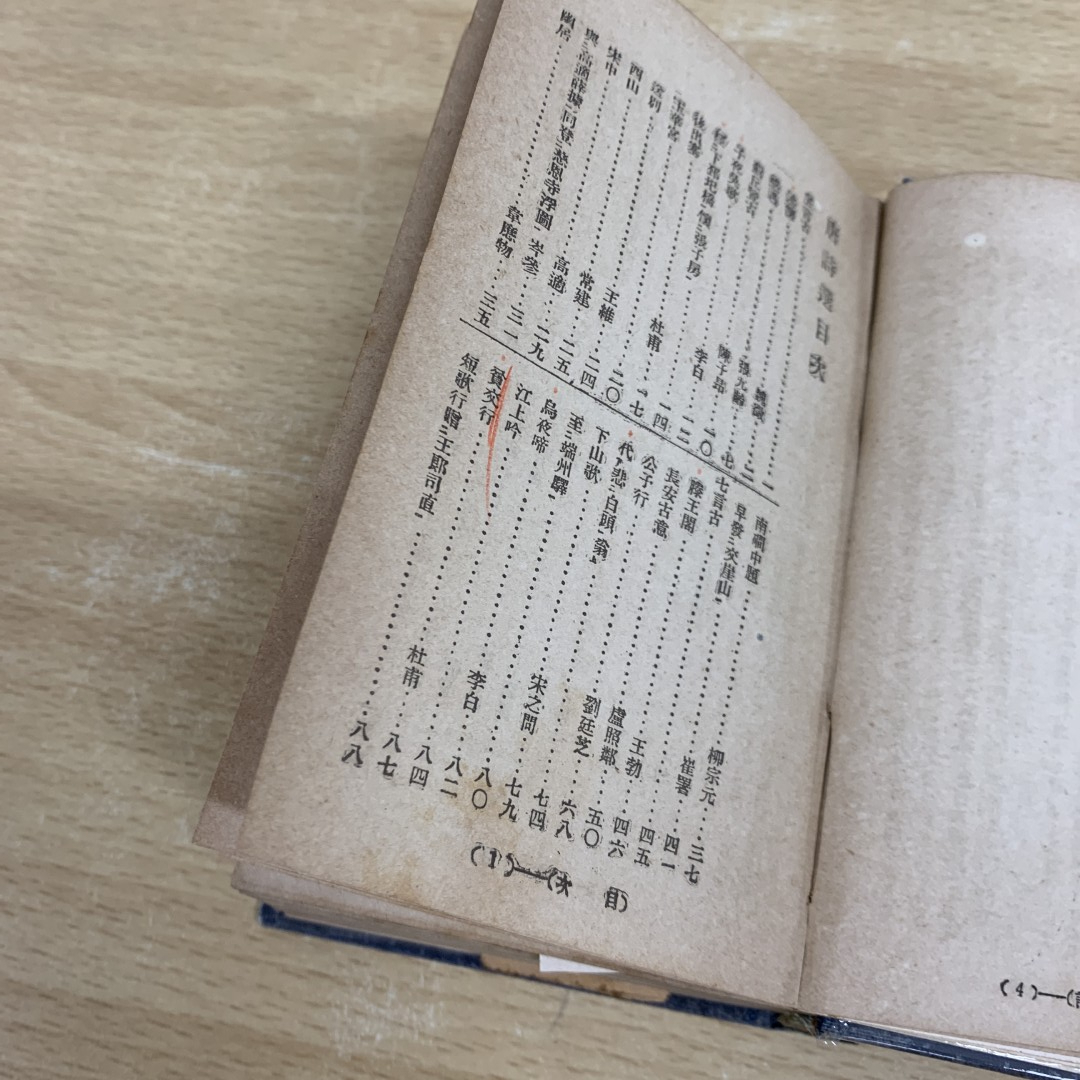 唐詩選目次
五言古
述懷……魏徵……二
感遇……張九齡……七
薊丘覽古……陳子昂……一〇
子夜吳歌
經下邳圯橋懷張子房……李白……一二
後出塞
玉華宮……杜甫……一四
送別……一七
西山……王維……二〇
宋中……常建……二四
與高適薛據同登慈恩寺浮圖……岑參……三一
幽居……韋應物……三五
南磵中題……柳宗元……三七
早發交崖山……崔署……四一
七言古……四五
滕王閣……王勃……四六
長安古意……盧照鄰……五〇
公子行……劉廷芝……六八
代悲白頭翁……七四
下山歌……宋之問……七九
至端州驛……八〇
烏夜啼……李白……八二
江上吟……八四
貧交行……杜甫……八七
短歌行贈王郞司直……八八
(1)—(次 目)
(4)—(